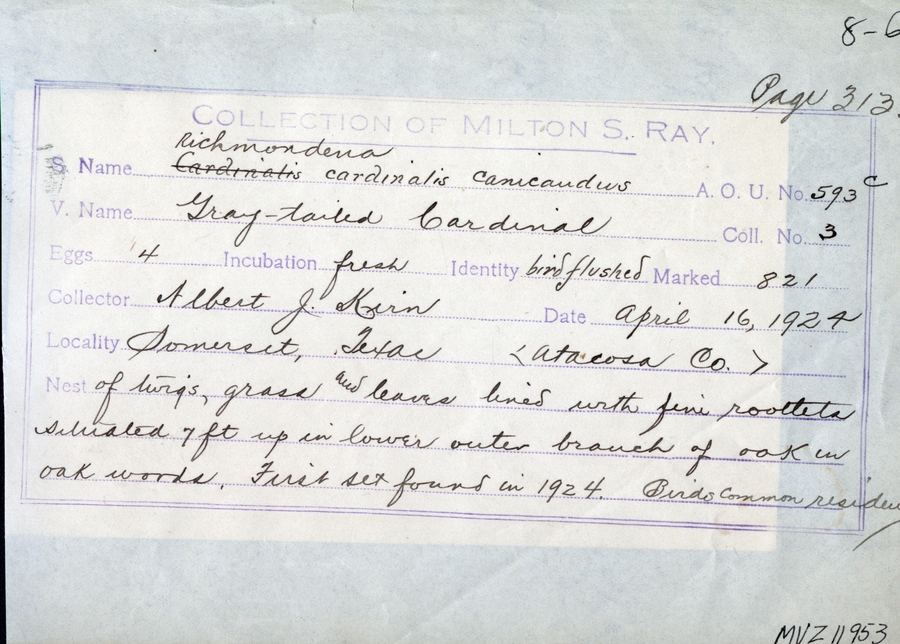 8-6
Page 313.
COLLECTION OF MILTON S. RAY.
Richmondena
S. Name Cardinalis cardinalis canicaudus A. O. U. No. 593c
V. Name Gray-tailed Cardinal Coll. No. 3
Eggs 4 Incubation fresh Identity bird flushed Marked 821
Collector Albert J. Kirn Date April 16, 1924
Locality Somerset, Texas <Atacosa Co.>
Nest of twigs, grass and leaves lined with fine rootlets
situated 7 ft up in lower outer branch of oak in
oak woods. First set found in 1924. Birds common residen
MVZ 11953